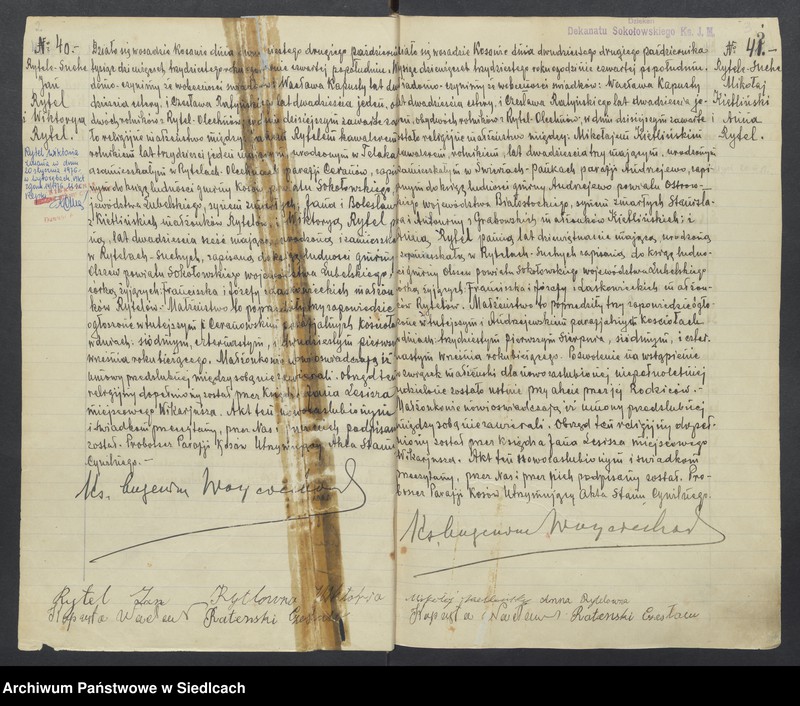 № 40.-
Rytele-Suche
Jan
Rytel
i Wiktorya
Rytel.
Działo się w osadzie Kosowie dnia dwudziestego drugiego październi
tysiąc dziewięćset trzydziestego roku o godzinie czwartej popołudniu.
domo czynimy że w obecności świadków: Wacława Kapusty lat dwa
dzieścia cztery i Czesława Ratyńskiego lat dwadzieścia jeden, o
dwóch rolników z Rytel-Olechnów w dniu dzisiejszym zawarte zo
ło religijne małżeństwo między: Janem Rytelem kawalerem
rolnikiem lat trzydzieści jeden mającym, urodzonym w Telaka
zamieszkałym w Rytelach-Olechnach parafji Ceranów, zapi
nym do ksiąg ludności gminy Kosów powiatu Sokołowskiego,
jewództwa Lubelskiego, synem zmarłych Jana i Bolesław
z Kietlińskich małżonków Rytelów, i Wiktoryą Rytel p
ną, lat dwadzieścia sześć mającą, urodzoną i zamieszka
w Rytelach-Suchych, zapisaną do ksiąg ludności gminy
Olszew powiatu Sokołowskiego województwa Lubelskiego,
córką żyjących Franciszka i Józefy z Laskowieckich małżon
ków Rytelów. Małżeństwo to poprzedziły trzy zapowiedzie
ogłoszone w tutejszym i Ceranowskim parafjalnych kościoła
w dniach: siódmym, czternastym, i dwudziestym pierwsz
września roku bieżącego. Małżonkowie nowi oświadczają iż
umowy przedślubnej między sobą nie zawierali. Obrzęd ten
religijny dopełniony został przez Księdza Jana Leszcza
miejscowego Wikarjusza. Akt ten nowozaślubionym
i świadkom przeczytany, przez Nas i przez nich podpisany
został. Proboszcz Parafji Kosów Utrzymujący Akta Stanu
Cywilnego.-
Ks. Eugenjusz
Rytel Jan Rytlówna Wiktorja
Kapusta Wacław Ratenski Czesław
Dekanatu Sokołowskiego Ks. J. M.
№ 41.-
Rytele-Suche
Mikołaj
Kietliński
i
Anna
Rytel.
Działo się w osadzie Kosowie dnia dwudziestego drugiego października
tysiąc dziewięćset trzydziestego roku o godzinie czwartej popołudniu.
Wiadomo czynimy że w obecności świadków: Wacława Kapusty
lat dwadzieścia cztery, i Czesława Ratyńskiego lat dwadzieścia je-
den, obydwóch rolników z Rytel-Olechnów, w dniu dzisiejszym zawarte
zostało religijne małżeństwo między: Mikołajem Kietlińskim
kawalerem, rolnikiem, lat dwadzieścia trzy mającym, urodzonym
i zamieszkałym w Świerczach-Pańkach parafji Andrzejewo, zapi-
sanym do ksiąg ludności gminy Andrzejewo powiatu Ostrow-
skiego województwa Białostockiego, synem zmarłych Stanisła-
wa i Antoniny z Grabowskich małżonków Kietlińskich; i
Anną Rytel panną lat dziewiętnaście mającą, urodzoną
i zamieszkałą w Rytelach-Suchych zapisaną do ksiąg ludno-
ści gminy Olszew powiatu Sokołowskiego województwa Lubelskiego
córką żyjących Franciszka i Józefy z Laskowieckich małżon-
ków Rytelów. Małżeństwo to poprzedziły trzy zapowiedzie ogło-
szone w tutejszym i Andrzejewskim parafjalnych Kościołach
w dniach: trzydziestym pierwszym sierpnia, siódmym, i czter-
nastym września roku bieżącego. Pozwolenie na wstąpienie
w związek małżeński dla nowozaślubionej niepełnoletniej
udzielone zostało ustnie przy akcie przez jej Rodziców.-
Małżonkowie nowi oświadczają iż umowy przedślubnej
między sobą nie zawierali. Obrzęd ten religijny dopeł-
niony został przez księdza Jana Leszcza miejscowego
Wikarjusza. Akt ten nowozaślubionym i świadkom
przeczytany, przez Nas i przez nich podpisany został. Pro-
boszcz Parafji Kosów Utrzymujący Akta Stanu Cywilnego.
Ks. Eugenjusz
Mikołaj Kietliński Anna Rytlówna
Kapusta Wacław Ratenski Czesław
Archiwum Państwowe w Siedlcach